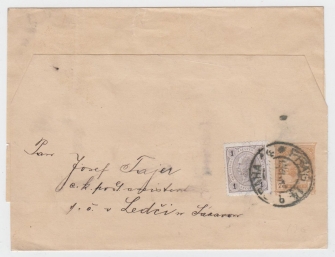 Pan
Josef Tajer
c.k. poštmistr
t. č. v Ledči n Sázavou
1 1
PRAG
PRAHA